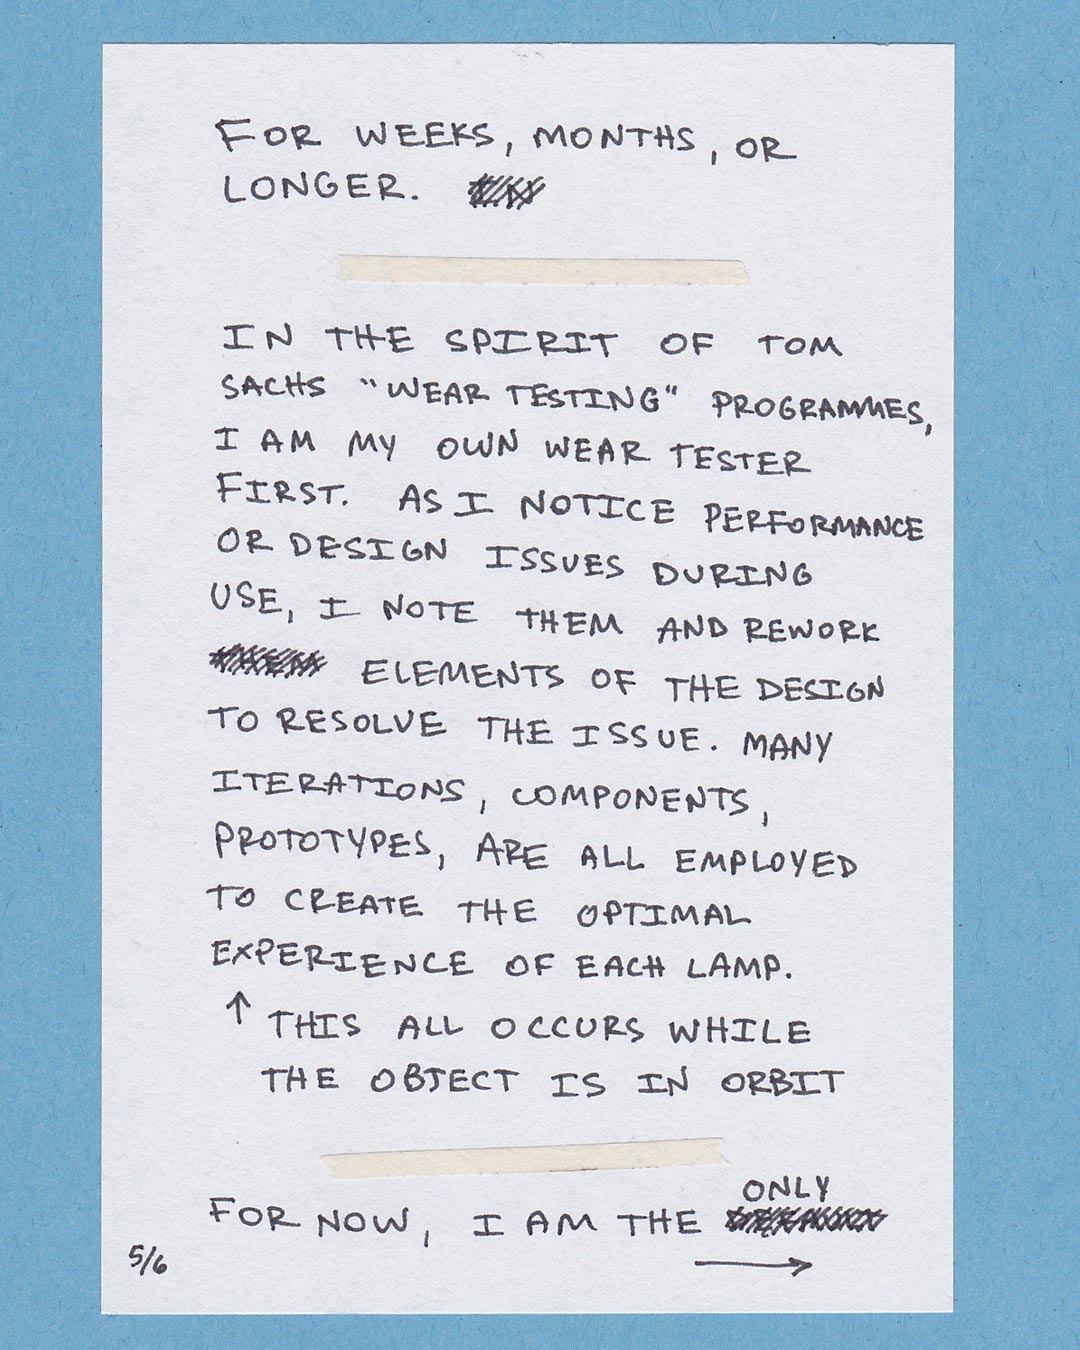 FOR WEEKS, MONTHS, OR
LONGER.
IN THE SPIRIT OF TOM
SACHS "WEAR TESTING" PROGRAMMES,
I AM MY OWN WEAR TESTER
FIRST. AS I NOTICE PERFORMANCE
OR DESIGN ISSUES DURING
USE, I NOTE THEM AND REWORK
ELEMENTS OF THE DESIGN
TO RESOLVE THE ISSUE. MANY
ITERATIONS, COMPONENTS,
PROTOTYPES, ARE ALL EMPLOYED
TO CREATE THE OPTIMAL
EXPERIENCE OF EACH LAMP.
↑ THIS ALL OCCURS WHILE
THE OBJECT IS IN ORBIT
ONLY
FOR NOW, I AM THE
5/6 →